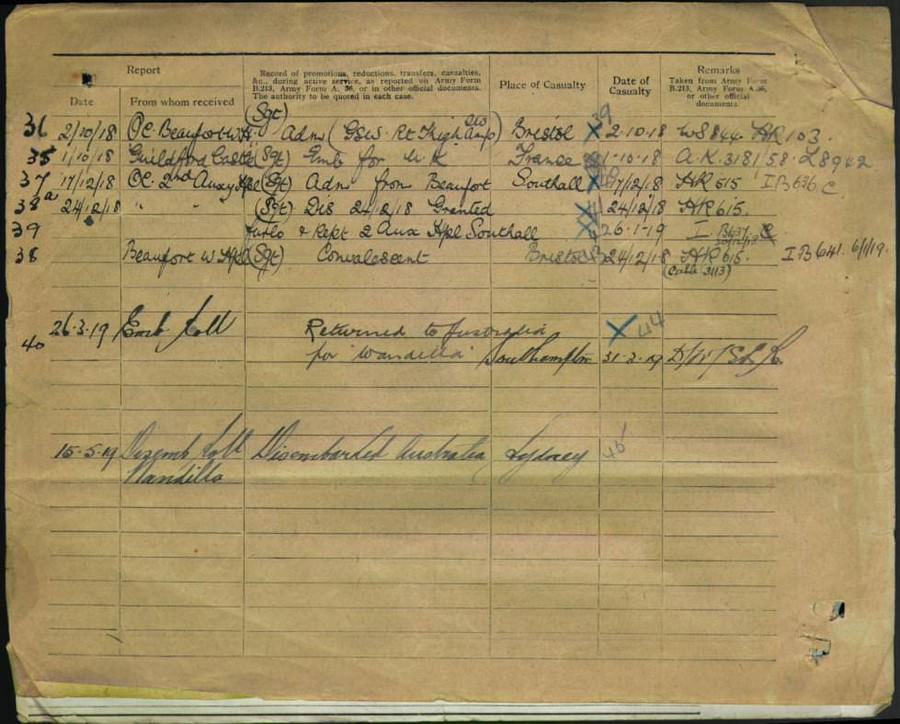 Report
Date
From whom received
Record of promotions, reductions, transfers, casualties,
&c., during active service, as reported on Army Form
B.213, Army Form A. 36, or in other official documents.
The authority to be quoted in each case.
Place of Casualty
Date of
Casualty
Remarks
Taken from Army Form
B.213, Army Form A.36,
or other official
documents.
36 2/10/18 OC. Beaufort W.H. (Sgt) Adm (GSW Rt Thigh Amp) Bristol X 39 2.10.18 WS844. HR103.
35 1/10/18 Guildford Castle (Sgt) Emb for U K France 1.10.18 A.K.3181/58. L8942
37 17/12/18 OC. 2nd Auxy Hpl (Sgt) Adm from Beaufort Southall X 17/12/18 HR 615 IB 636 C
38a 24/12/18 " " (Sgt) Dis 24/12/18 Granted X 24/12/18 HR615.
39 furlo & Rept 2 Aux Hpl Southall X 26.1.19 I B637
38 Beaufort W Hpl (Sgt) Convalescent Bristol 24/12/18 HR 615. IB641. 6/1/19.
(Cable 3113)
26.3.19 Emb Roll Returned to Australia X 44
40 for "Wandilla" Southampton 31.3.19
15.5.19 Disemb Roll Disembarked Australia Sydney 45
Wandilla